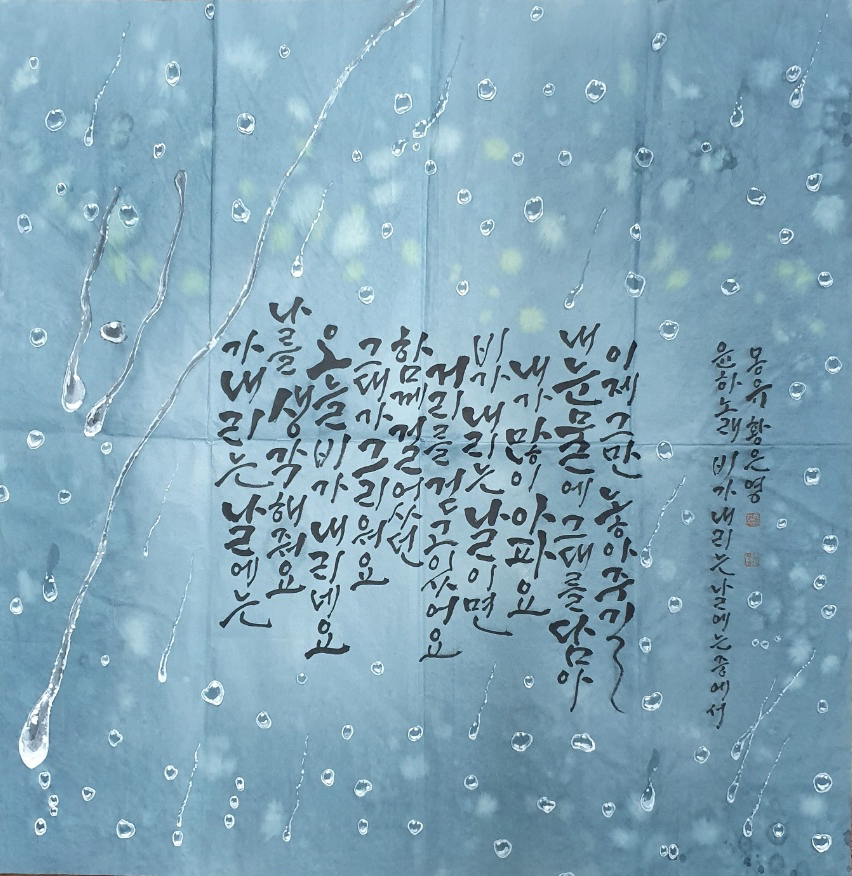 가 내리는 날에는
나를 생각해줘요
오늘 비가 내리네요
그대가 그리워요
함께 걸었던
거리를 걷고있어요
비가 내리는 날이면
내가 많이 아파요
내 눈물에 그대를 담아
이제 그만 놓아주길
윤하노래 비가내리는날에는중에서
몽유 황은영